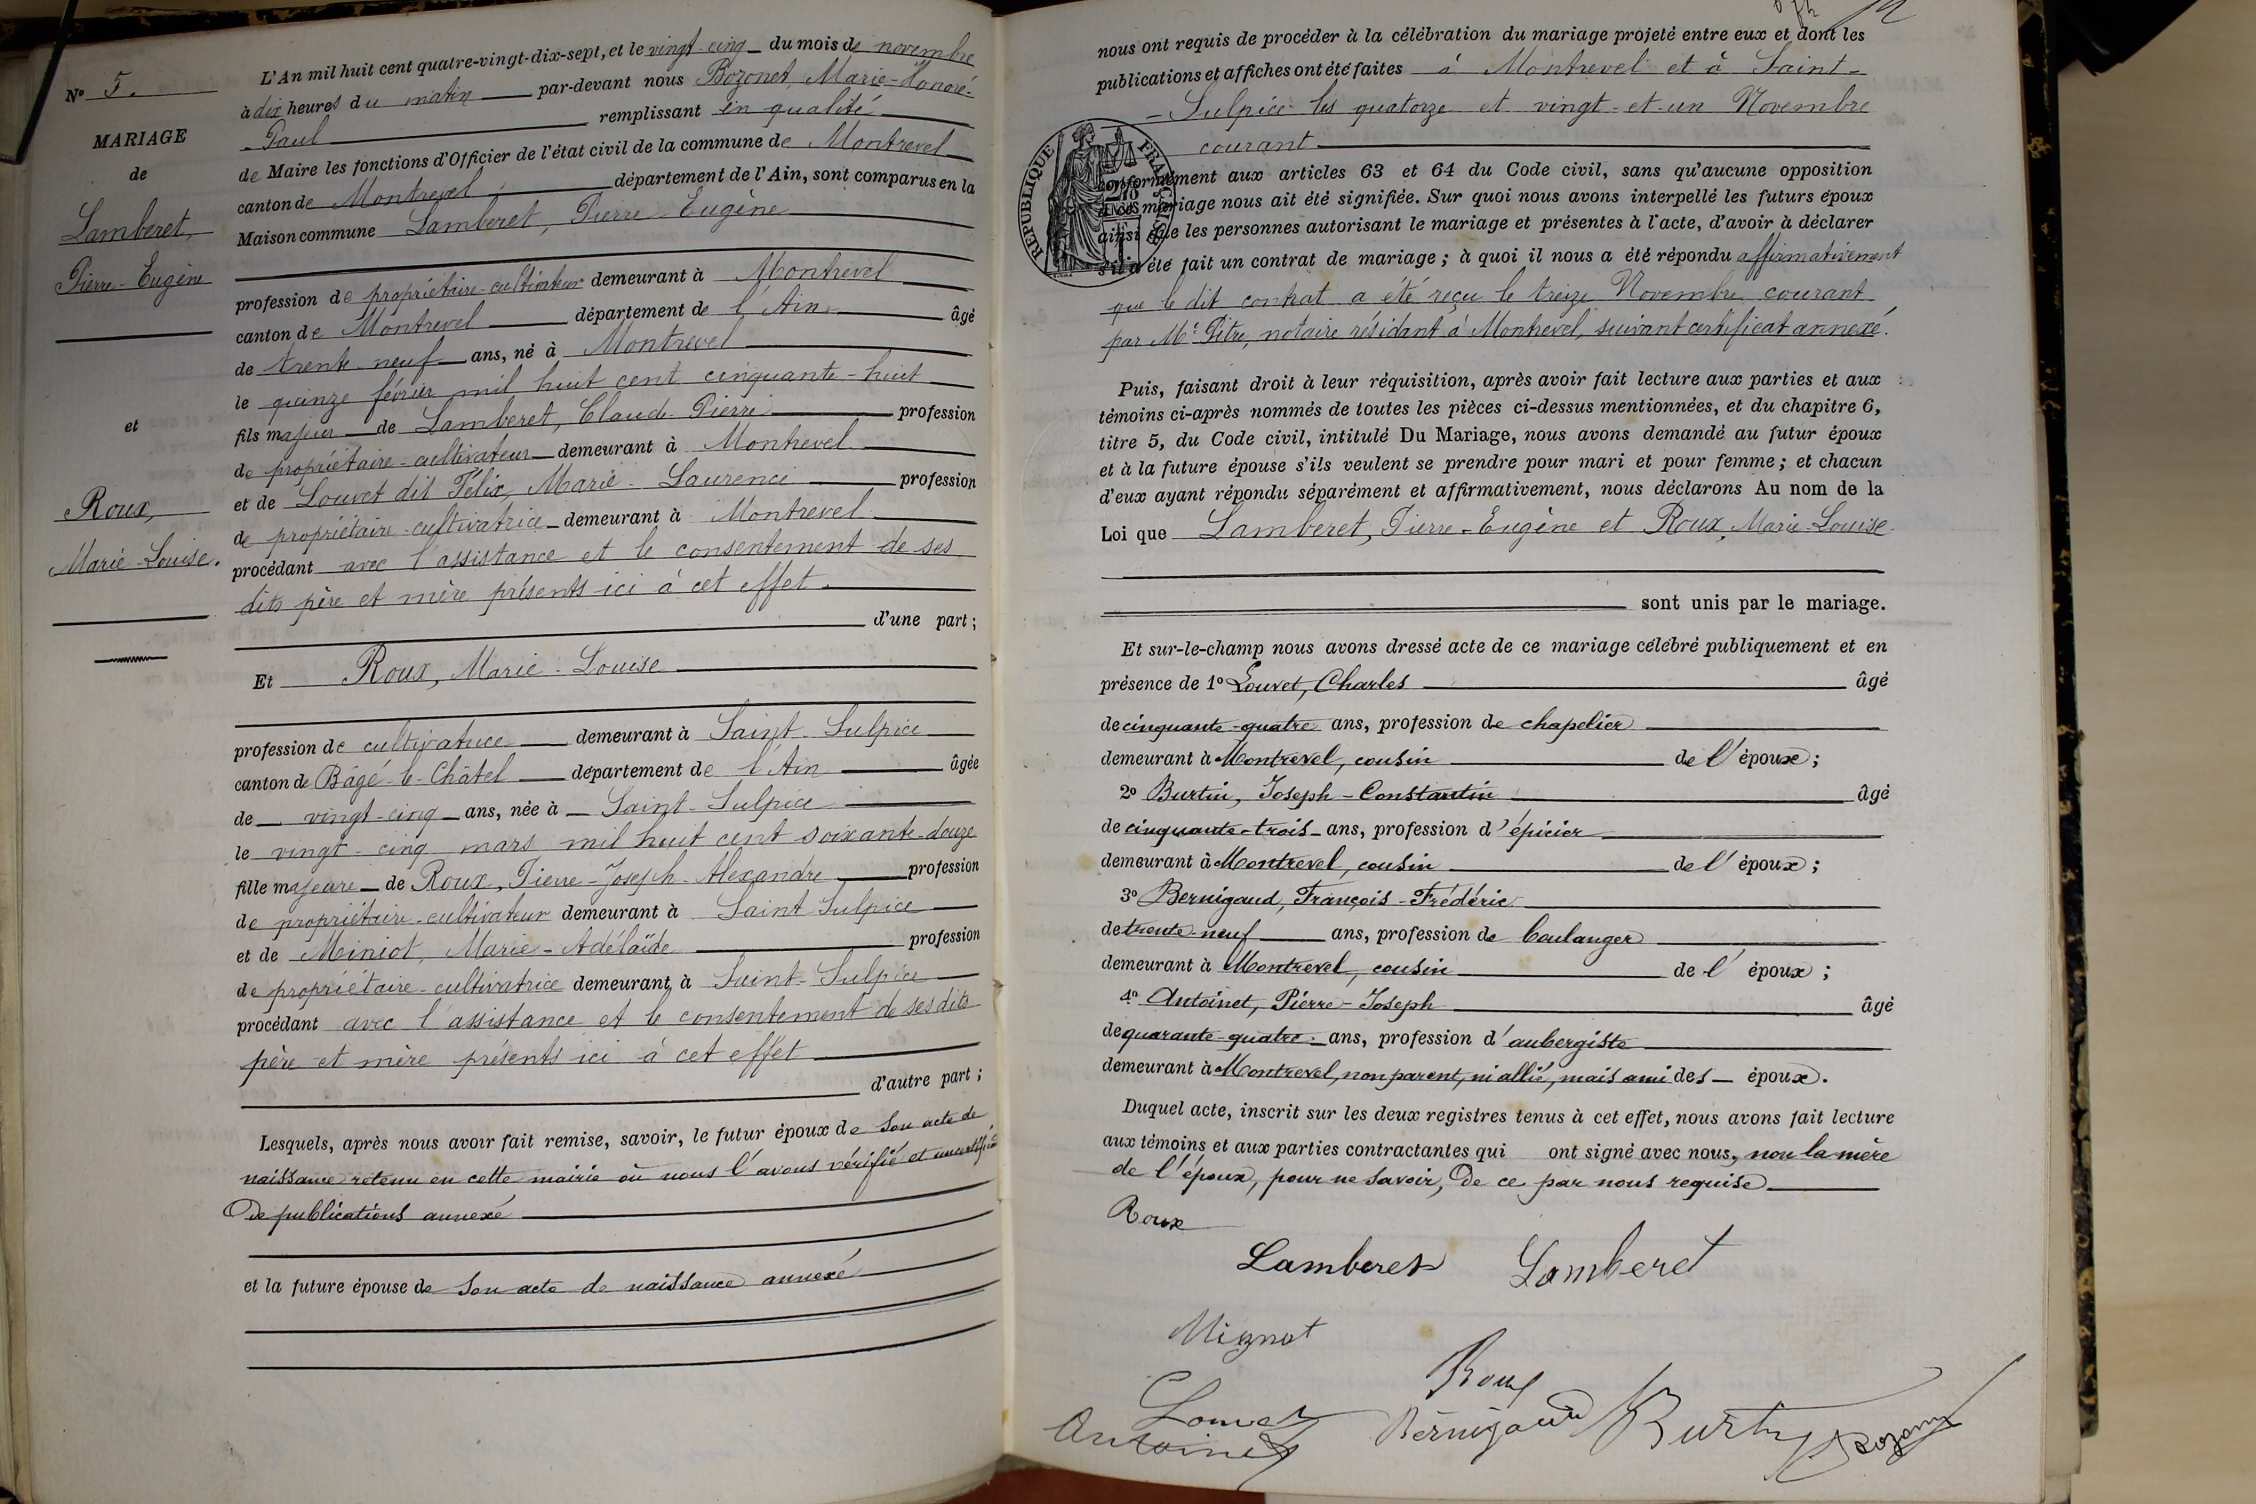 L'An mil huit cent quatre-vingt-dix-sept, et le vingt-cinq du mois de novembre
à dix heures du matin par-devant nous Bozonet, Marie-Honoré-
Paul remplissant en qualité
de Maire les fonctions d'Officier de l'état civil de la commune de Montrevel
canton de Montrevel département de l'Ain, sont comparus en la
Maison commune Lamberet, Pierre Eugène
profession de propriétaire-cultivateur demeurant à Montrevel
canton de Montrevel département de l'Ain âgé
de trente neuf ans, né à Montrevel
le quinze février mil huit cent cinquante-huit
fils majeur de Lamberet, Claude Pierre profession
de propriétaire-cultivateur demeurant à Montrevel
et de Louvet dit Félix, Marie-Laurence profession
de propriétaire-cultivatrice demeurant à Montrevel
procédant avec l'assistance et le consentement de ses
dits père et mère présents ici à cet effet.
d'une part;
Et Roux, Marie-Louise
profession de cultivatrice demeurant à Saint-Sulpice
canton de Bâgé-le-Châtel département de l'Ain âgée
de vingt-cinq ans, née à Saint-Sulpice
le vingt-cinq mars mil huit cent soixante-douze
fille majeure de Roux, Pierre-Joseph-Alexandre profession
de propriétaire-cultivateur demeurant à Saint Sulpice
et de Miniot, Marie-Adélaïde profession
de propriétaire-cultivatrice demeurant à Saint-Sulpice
procédant avec l'assistance et le consentement de ses dits
père et mère présents ici à cet effet
d'autre part;
Lesquels, après nous avoir fait remise, savoir, le futur époux de son acte de
naissance retenu en cette mairie où nous l'avons vérifié et un certificat
De publications annexé
et la future épouse de son acte de naissance annexé
N° 5.
MARIAGE
de
Lamberet,
Pierre-Eugène
et
Roux,
Marie-Louise.
nous ont requis de procéder à la célébration du mariage projeté entre eux et dont les
publications et affiches ont été faites à Montrevel et à Saint-
Sulpice les quatorze et vingt-et-un Novembre
courant
RÉPUBLIQUE FRANÇAISE
conformément aux articles 63 et 64 du Code civil, sans qu'aucune opposition
à ce mariage nous ait été signifiée. Sur quoi nous avons interpellé les futurs époux
ainsi que les personnes autorisant le mariage et présentes à l'acte, d'avoir à déclarer
s'il a été fait un contrat de mariage; à quoi il nous a été répondu affirmativement
que le dit contrat a été reçu le treize Novembre courant
par Me Pitre, notaire résidant à Montrevel, suivant certificat annexé.
Puis, faisant droit à leur réquisition, après avoir fait lecture aux parties et aux
témoins ci-après nommés de toutes les pièces ci-dessus mentionnées, et du chapitre 6,
titre 5, du Code civil, intitulé Du Mariage, nous avons demandé au futur époux
et à la future épouse s'ils veulent se prendre pour mari et pour femme; et chacun
d'eux ayant répondu séparément et affirmativement, nous déclarons Au nom de la
Loi que Lamberet, Pierre-Eugène et Roux, Marie-Louise
sont unis par le mariage.
Et sur-le-champ nous avons dressé acte de ce mariage célébré publiquement et en
présence de 1° Louvet, Charles âgé
de cinquante-quatre ans, profession de chapelier
demeurant à Montrevel, cousin de l'époux;
2° Burtin, Joseph-Constantin âgé
de cinquante-trois ans, profession d'épicier
demeurant à Montrevel, cousin de l'époux;
3° Bernigaud, François-Frédéric
de trente-neuf ans, profession de boulanger
demeurant à Montrevel, cousin de l'époux;
4° Antoinet, Pierre-Joseph âgé
de quarante-quatre ans, profession d'aubergiste
demeurant à Montrevel, non parent, ni allié, mais ami des époux.
Duquel acte, inscrit sur les deux registres tenus à cet effet, nous avons fait lecture
aux témoins et aux parties contractantes qui ont signé avec nous, non la mère
de l'époux, pour ne savoir, De ce par nous requise
Roux
Lamberet Lamberet
Mignot
Roux
Louvet Bernigaud Burtin Bozonet
Antoinet